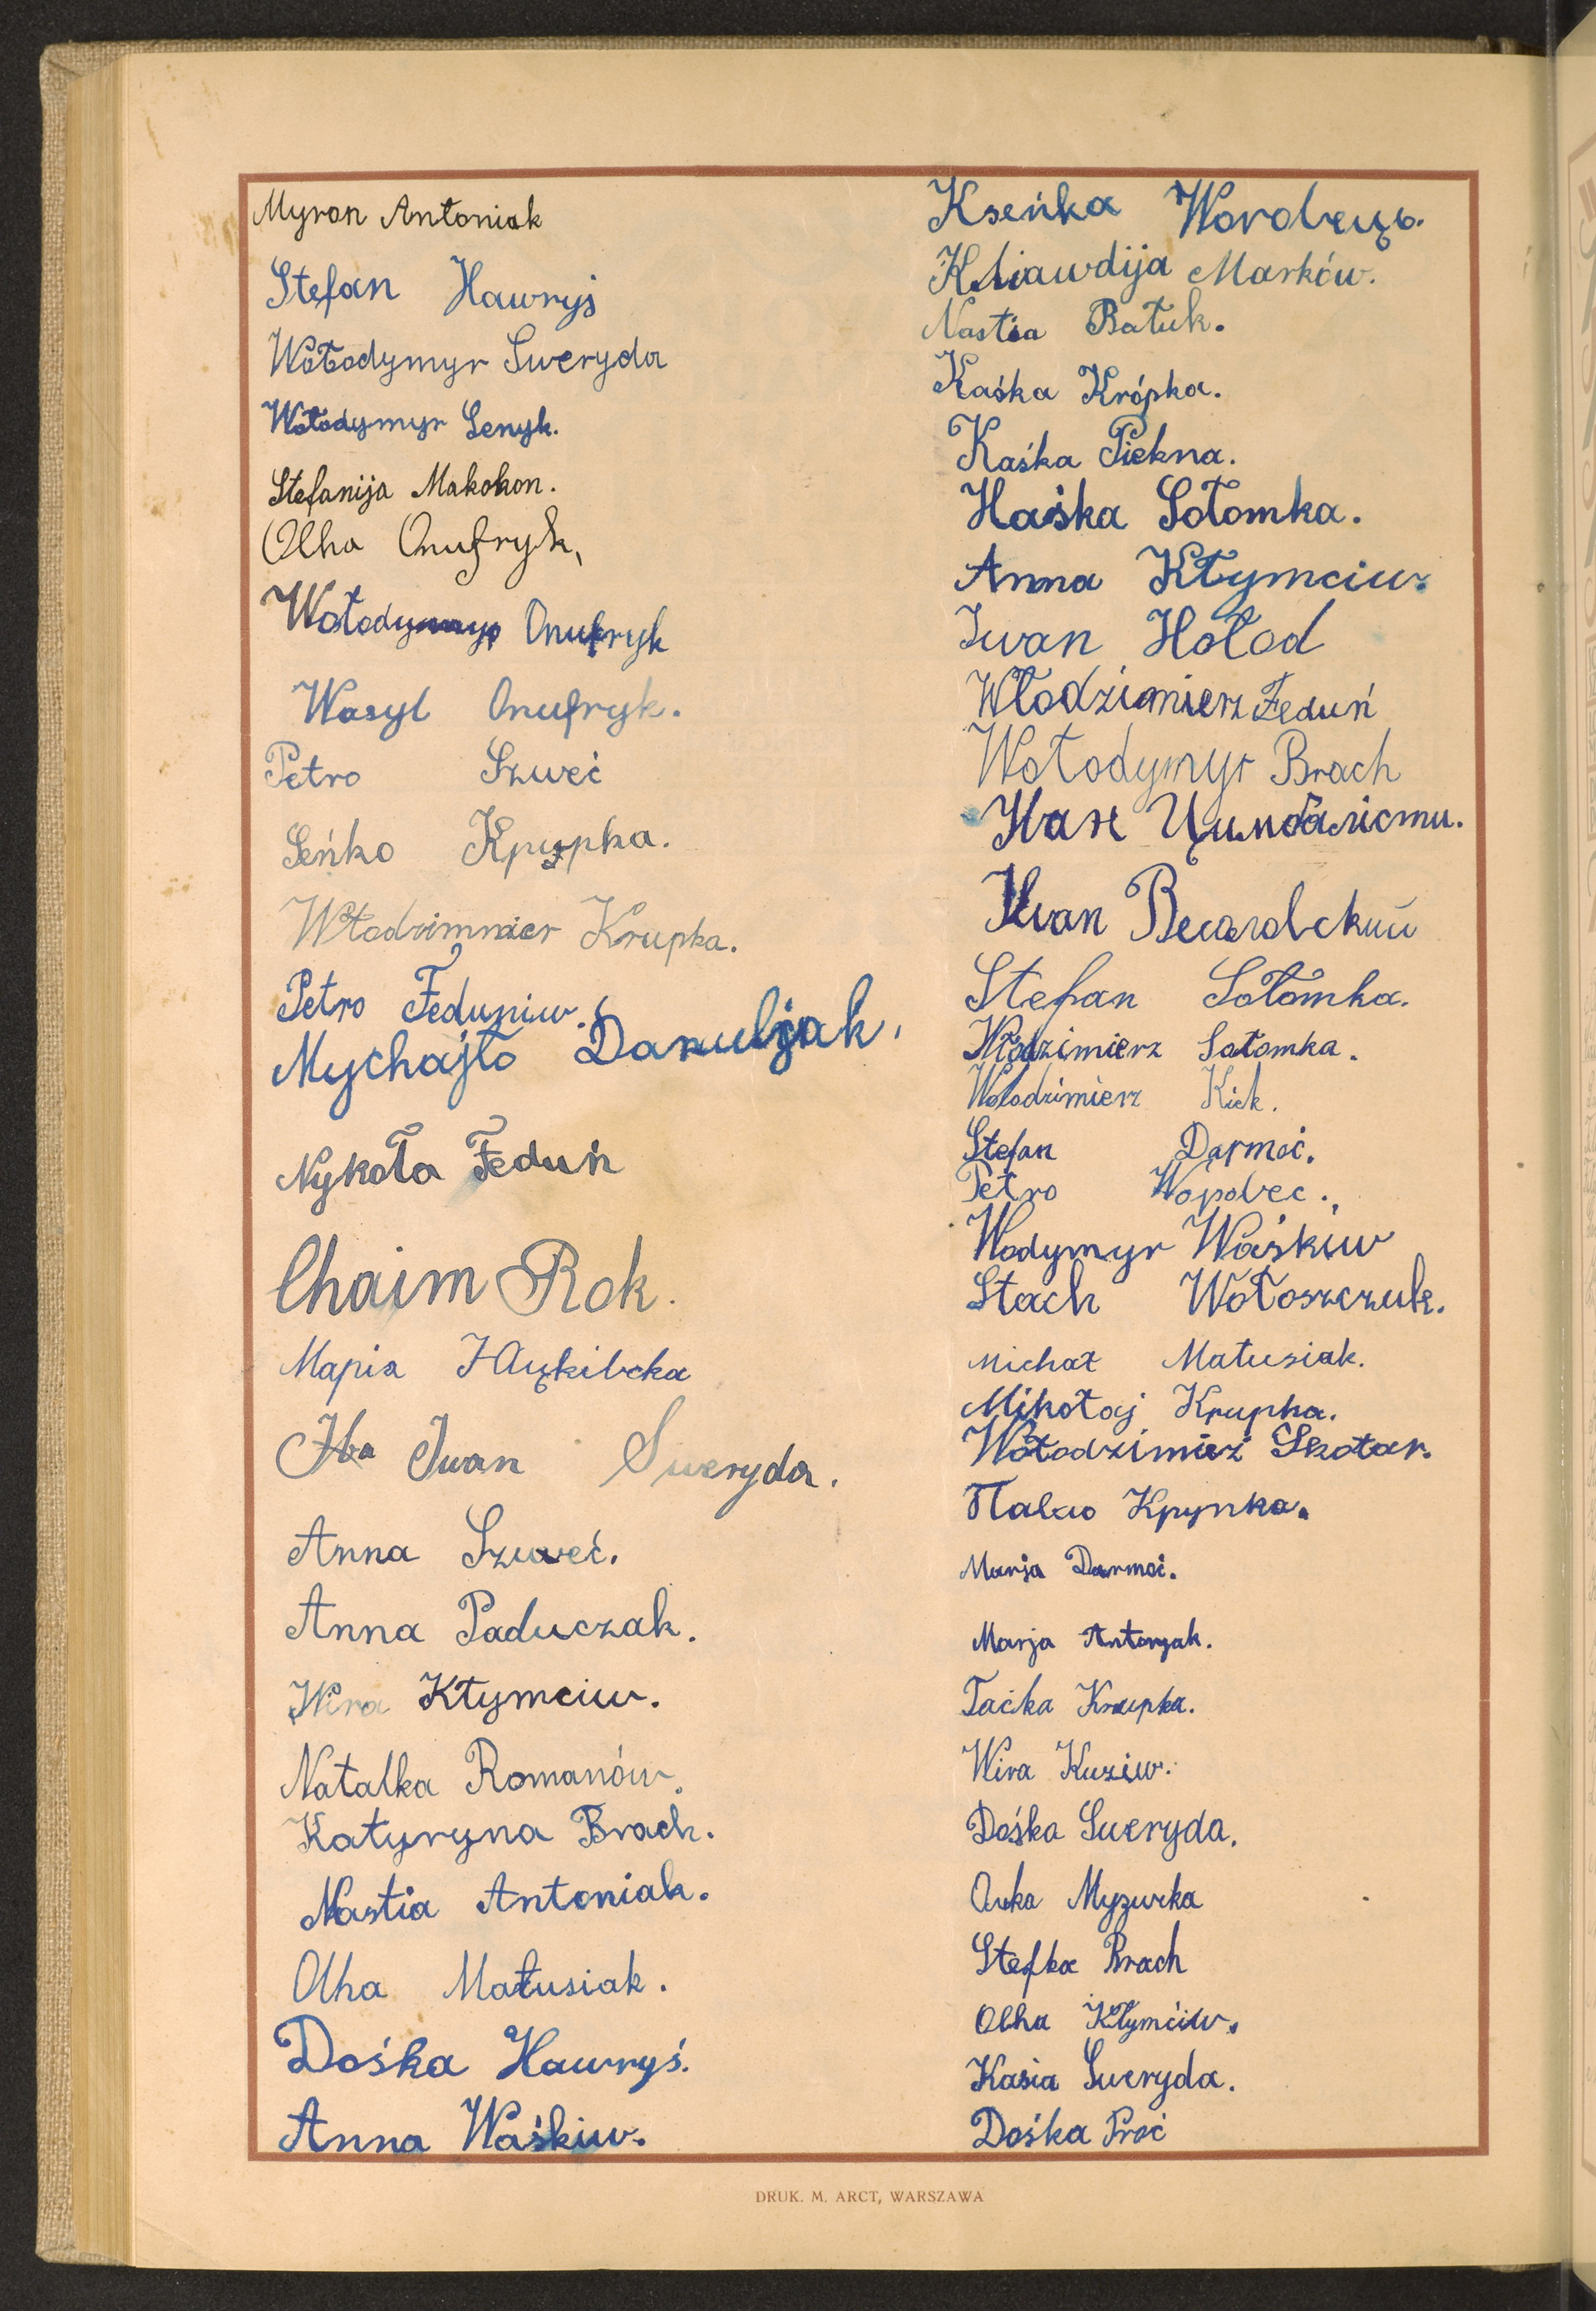 Myron Antoniak
Stefan Hawryś
Wołodymyr Sweryda
Wołodymyr Senyk.
Stefanija Makohon.
Olha Onufryk,
Wołodymyr Onufryk
Wasyl Onufryk.
Petro Szweć
Seńko
Włodzimnier Krupka.
Petro Feduniw.
Mychajło
Nykoła Feduń
Chaim Rok.
Марія
Iwan Sweryda.
Anna Szweć.
Anna Paduczak.
Wira Kłymciw.
Natalka Romanów.
Katyryna Brach.
Nastia Antoniak.
Olha Matusiak.
Dośka Hawryś.
Anna Waśkiw.
Kseńka
Kliawdija Marków.
Nastia Batuk.
Kaśka Krópka.
Kaśka Piekna.
Haśka Sołomka.
Anna Kłymciw.
Iwan Hołod
Włodzimierz Feduń
Wołodymyr Brach
Stefan Sołomka.
Włodzimierz Sołomka.
Wołodzimierz Kick.
Stefan Darmoć.
Petro
Wodymyr Waśkiw
Stach Wołoszczuk.
Michał Matusiak.
Mikołaj Krupka.
Wołodzimież Skotar.
Крупка.
Marja Darmoć.
Marja Antonjak.
Taćka Krupka.
Wira Kuziw.
Dośka Sweryda.
Stefka Brach
Olha Kłymciw.
Kasia Sweryda.
Dośka Proć
DRUK. M. ARCT, WARSZAWA